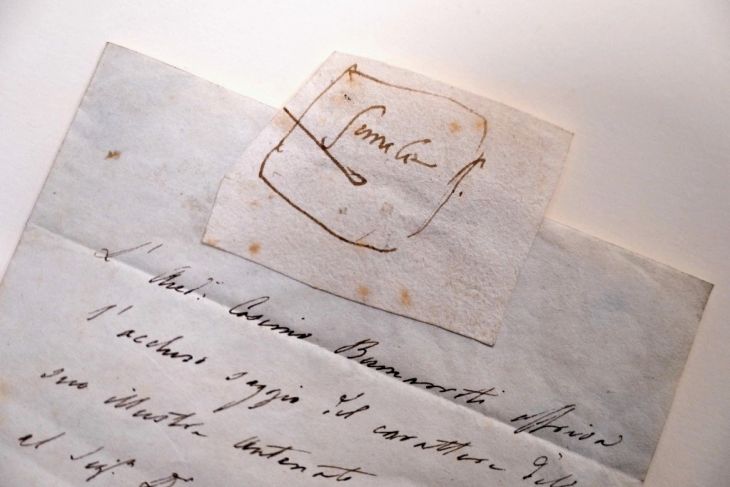 simile
L' Cosimo Buonarroti offriva
l'accluso saggio del carattere del
suo illustre antenato
al Sigr